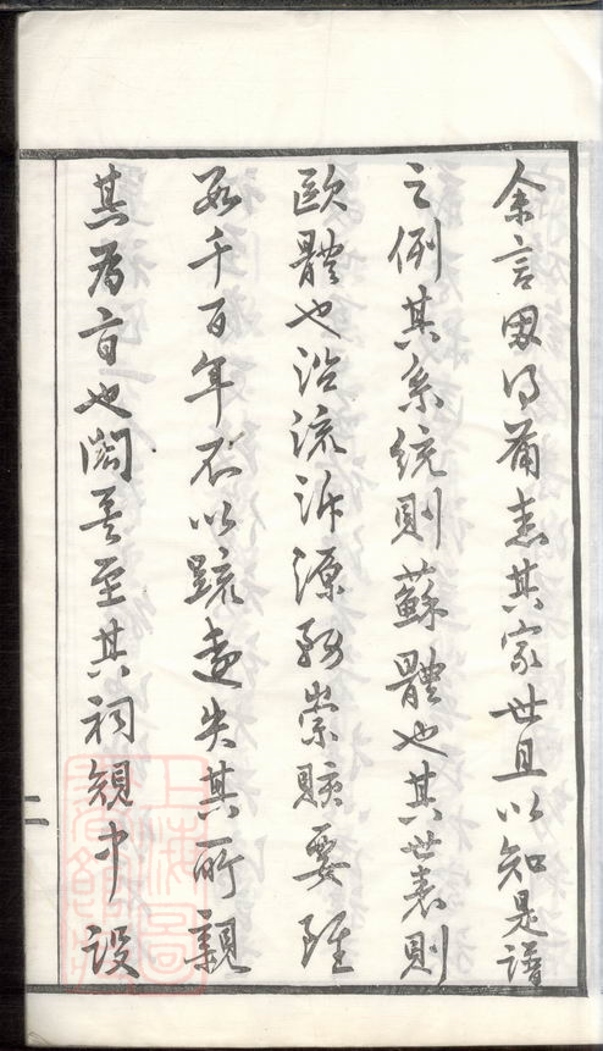 余言因得備悉其家世且以知是譜
之例其系統則蘇體也其世表則
歐體也沿流泝源務崇賅要雖
數千百年不以疏遠失其所親
其為旨也矣至其祠規中設
二
上海圖書館藏